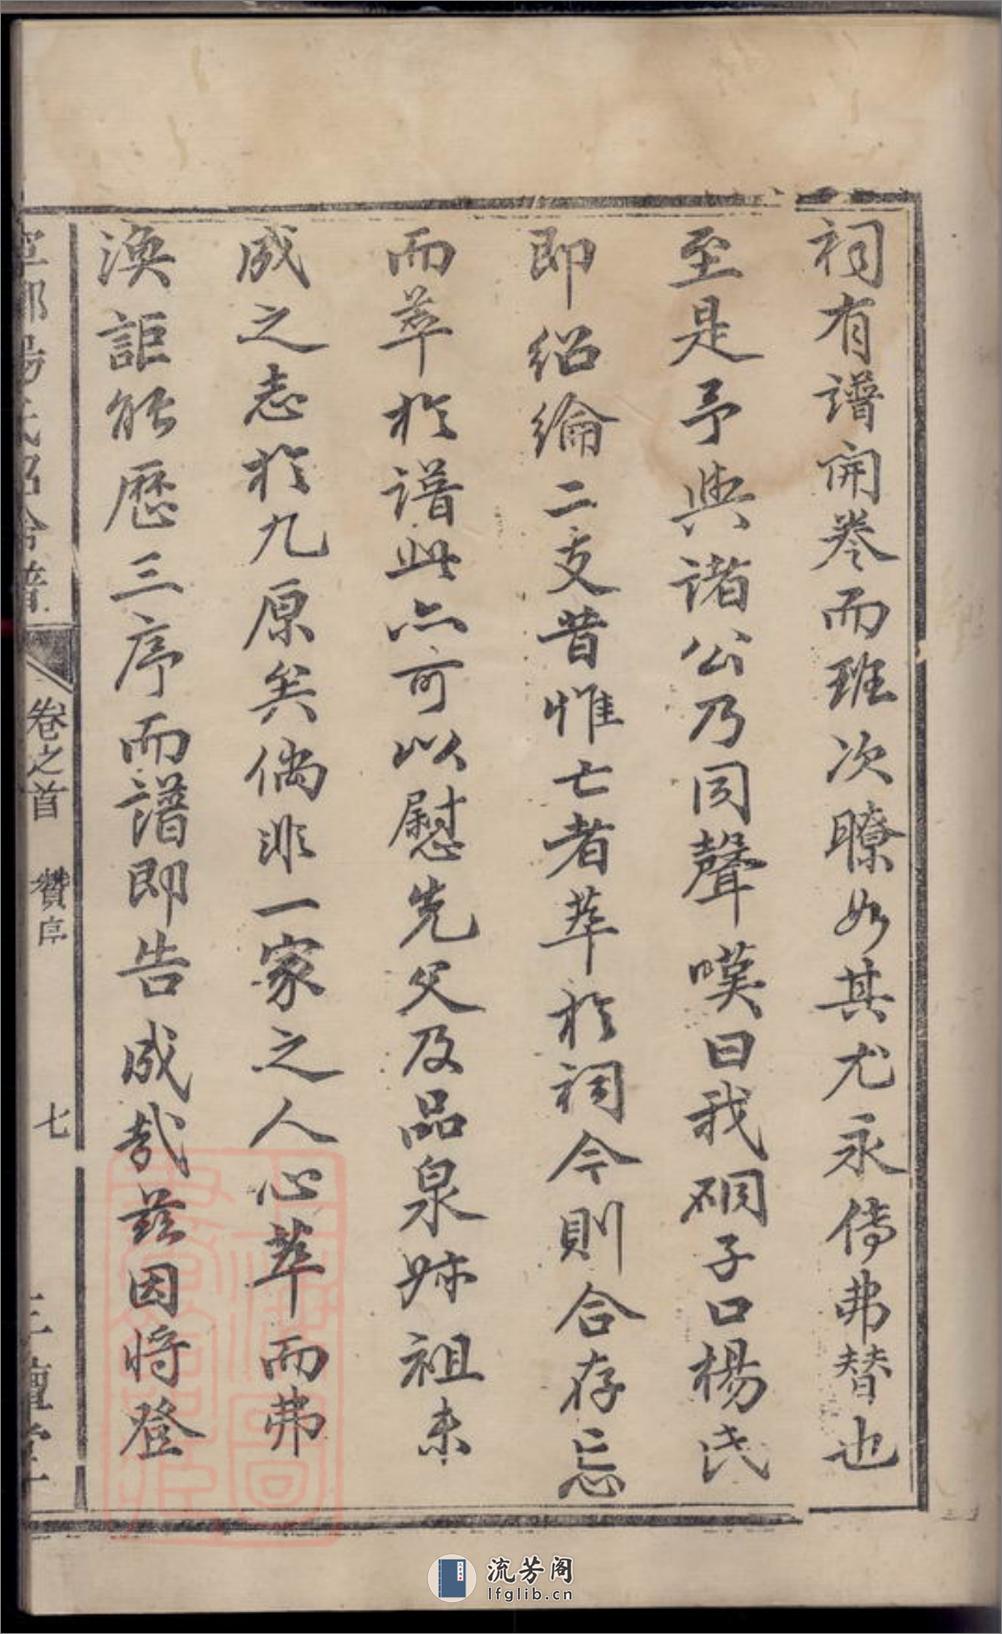 祠有譜開卷而班次瞭如其尤永傳弗替也
至是予與諸公乃同聲嘆曰我硐子口楊氏
即紹綸二支昔惟亡者萃於祠今則合存亡
而萃於譜此亦可以慰先父及品泉妳祖未
成之志於九原矣倘非一家之人心萃而弗
渙詎能歷三序而譜即告成哉茲因將登
卷之首
贊序
七
三鱣堂
流芳阁
lfglib.cn